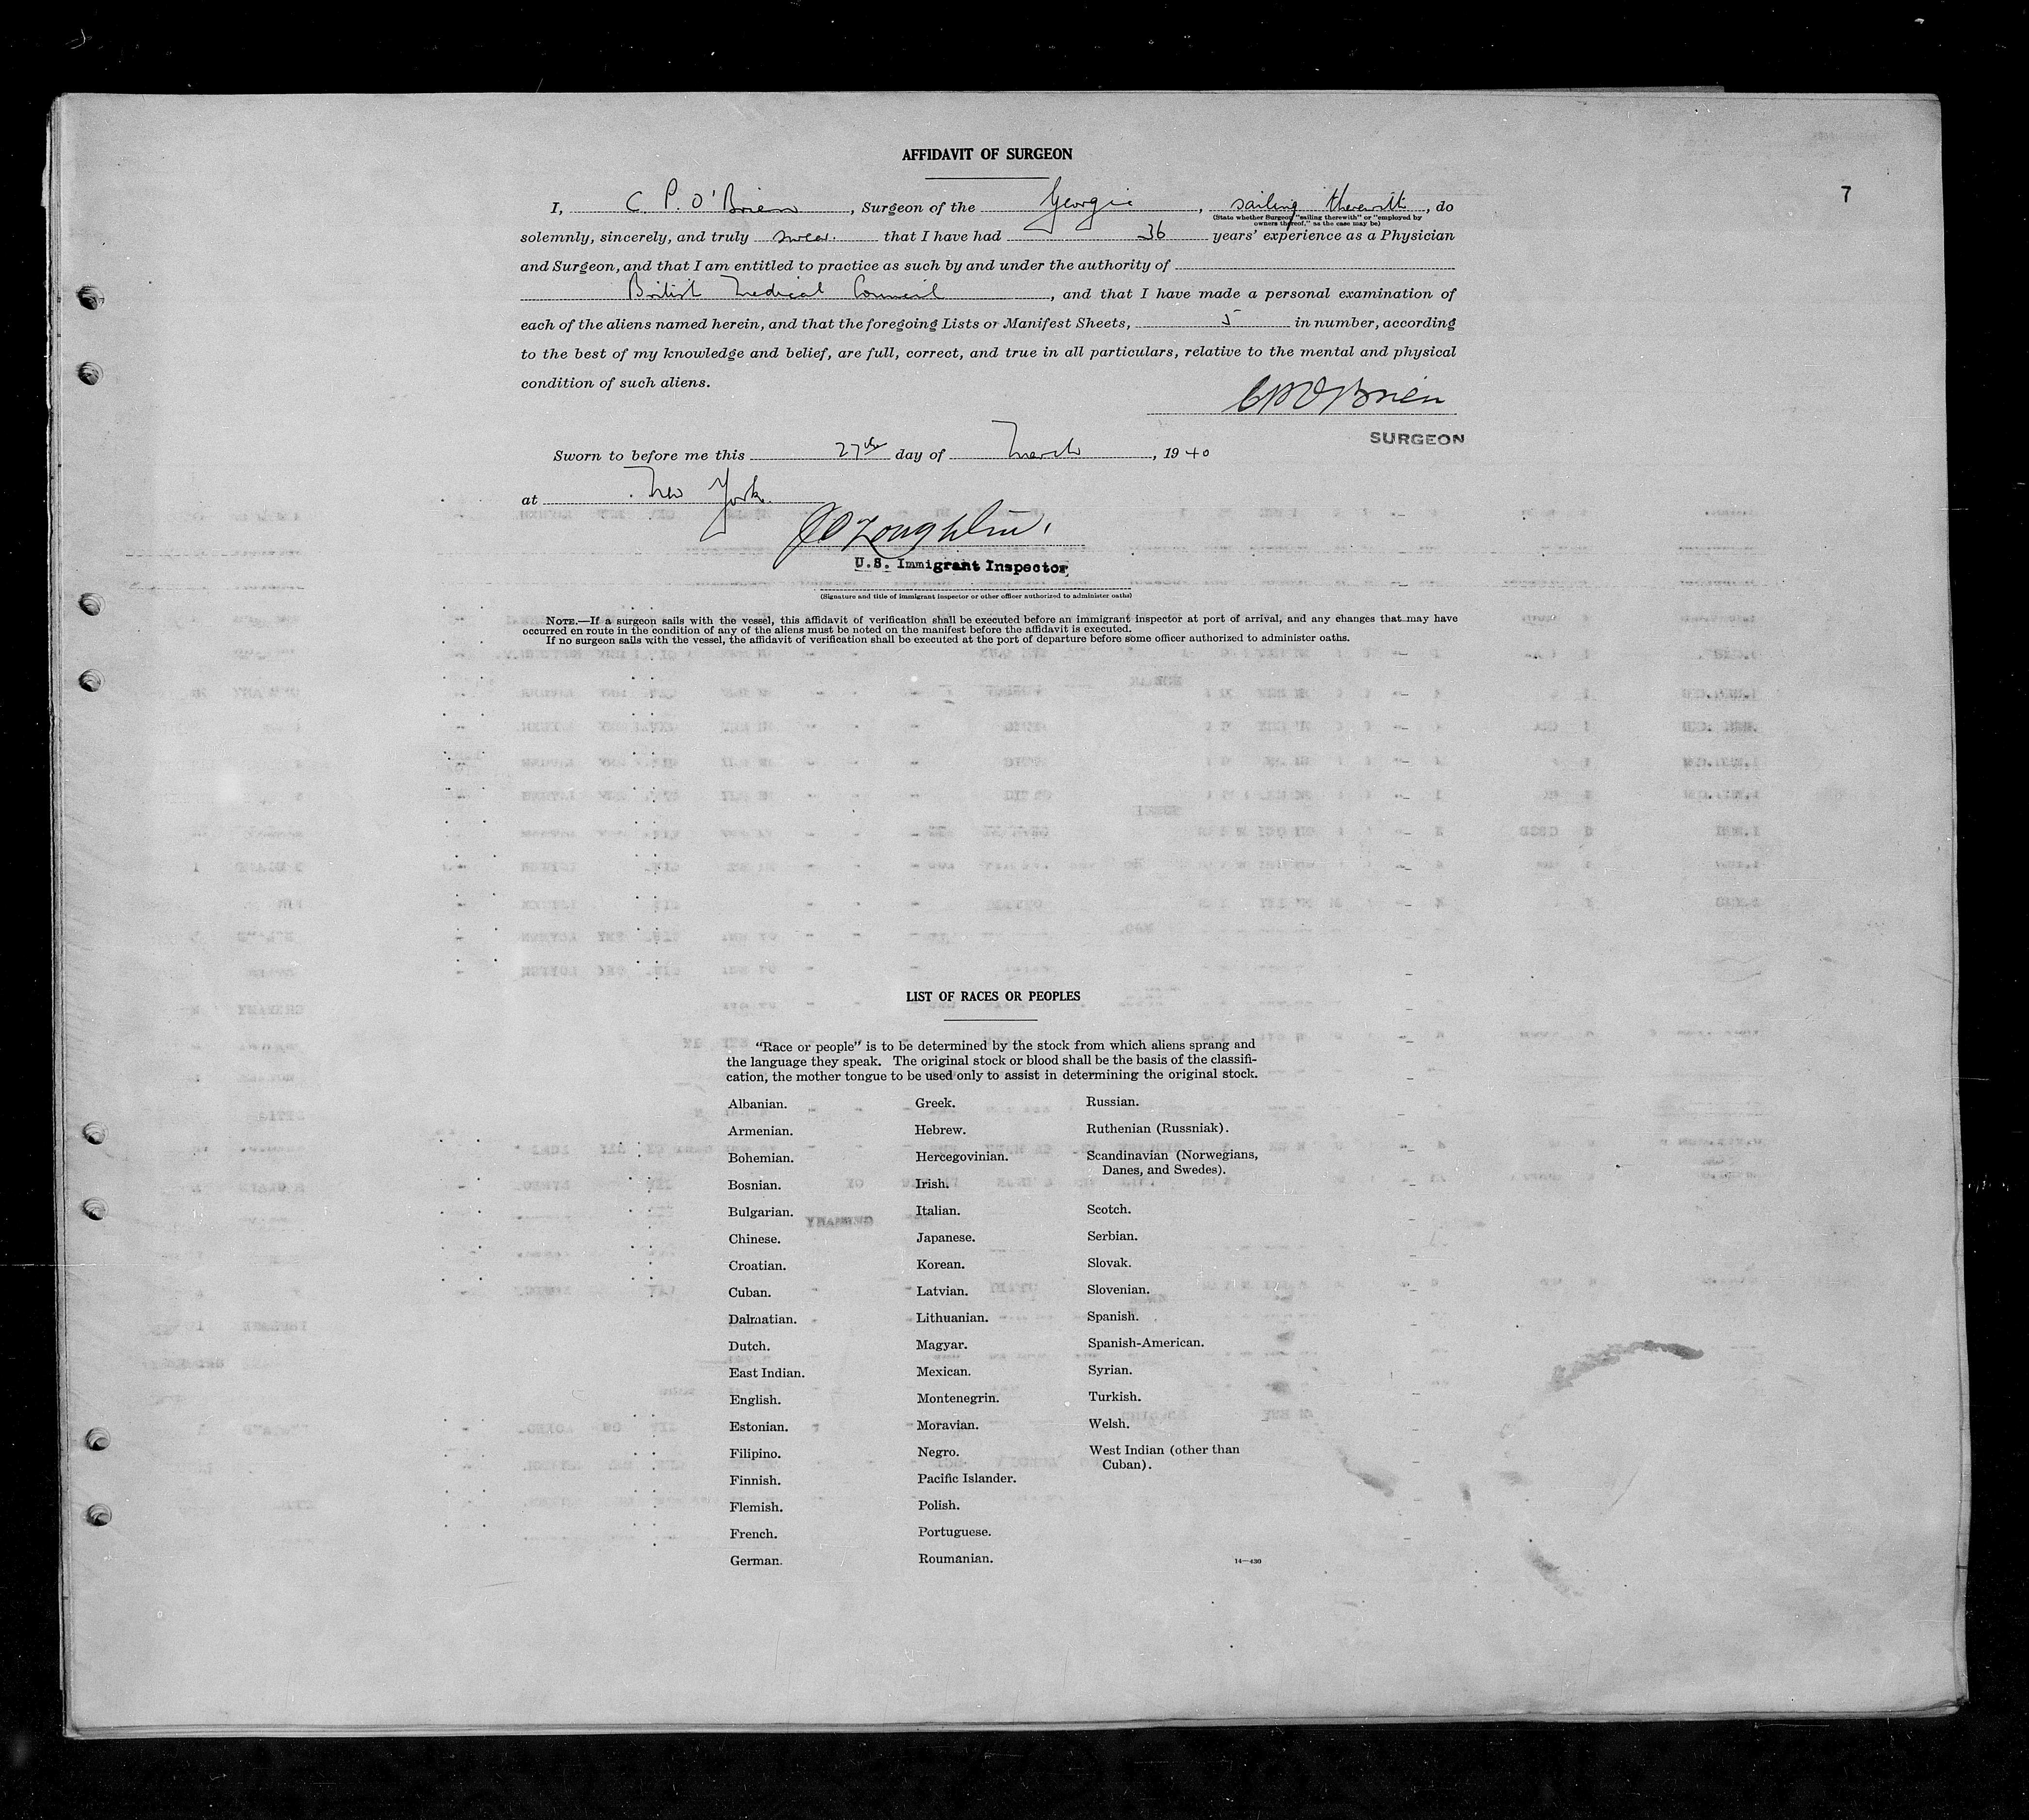 AFFIDAVIT OF SURGEON
7
I, C. P. O'Brien, Surgeon of the Georgic, sailing therewith, do
(State whether Surgeon "sailing therewith" or "employed by
owners thereof," as the case may be)
solemnly, sincerely, and truly swear. that I have had 36 years' experience as a Physician
and Surgeon, and that I am entitled to practice as such by and under the authority of
British Medical Council, and that I have made a personal examination of
each of the aliens named herein, and that the foregoing Lists or Manifest Sheets, 5 in number, according
to the best of my knowledge and belief, are full, correct, and true in all particulars, relative to the mental and physical
condition of such aliens.
CPO'Brien
SURGEON
Sworn to before me this 27th day of March, 1940
at New York.
U.S. Immigrant Inspector
(Signature and title of immigrant inspector or other officer authorized to administer oaths)
NOTE.—If a surgeon sails with the vessel, this affidavit of verification shall be executed before an immigrant inspector at port of arrival, and any changes that may have
occurred en route in the condition of any of the aliens must be noted on the manifest before the affidavit is executed.
If no surgeon sails with the vessel, the affidavit of verification shall be executed at the port of departure before some officer authorized to administer oaths.
LIST OF RACES OR PEOPLES
"Race or people" is to be determined by the stock from which aliens sprang and
the language they speak. The original stock or blood shall be the basis of the classifi-
cation, the mother tongue to be used only to assist in determining the original stock.
Albanian.
Armenian.
Bohemian.
Bosnian.
Bulgarian.
Chinese.
Croatian.
Cuban.
Dalmatian.
Dutch.
East Indian.
English.
Estonian.
Filipino.
Finnish.
Flemish.
French.
German.
Greek.
Hebrew.
Hercegovinian.
Irish.
Italian.
Japanese.
Korean.
Latvian.
Lithuanian.
Magyar.
Mexican.
Montenegrin.
Moravian.
Negro.
Pacific Islander.
Polish.
Portuguese.
Roumanian.
Russian.
Ruthenian (Russniak).
Scandinavian (Norwegians,
Danes, and Swedes).
Scotch.
Serbian.
Slovak.
Slovenian.
Spanish.
Spanish-American.
Syrian.
Turkish.
Welsh.
West Indian (other than
Cuban).
14—430